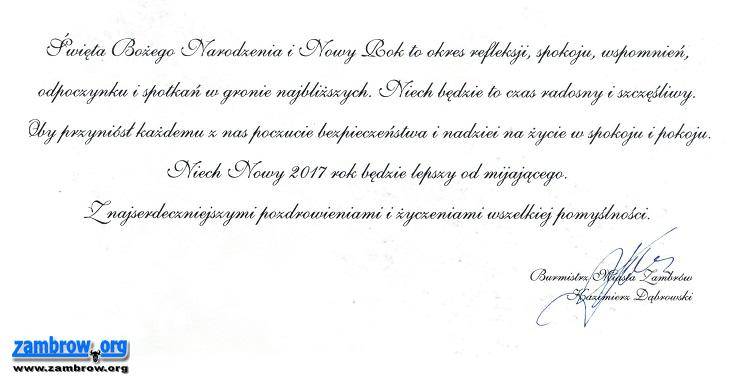 Święta Bożego Narodzenia i Nowy Rok to okres refleksji, spokoju, wspomnień,
odpoczynku i spotkań w gronie najbliższych. Niech będzie to czas radosny i szczęśliwy.
Oby przyniósł każdemu z nas poczucie bezpieczeństwa i nadziei na życie w spokoju i pokoju.
Niech Nowy 2017 rok będzie lepszy od mijającego.
Z najserdeczniejszymi pozdrowieniami i życzeniami wszelkiej pomyślności.
Burmistrz Miasta Zambrów
Kazimierz Dąbrowski
zambrow.org
www.zambrow.org